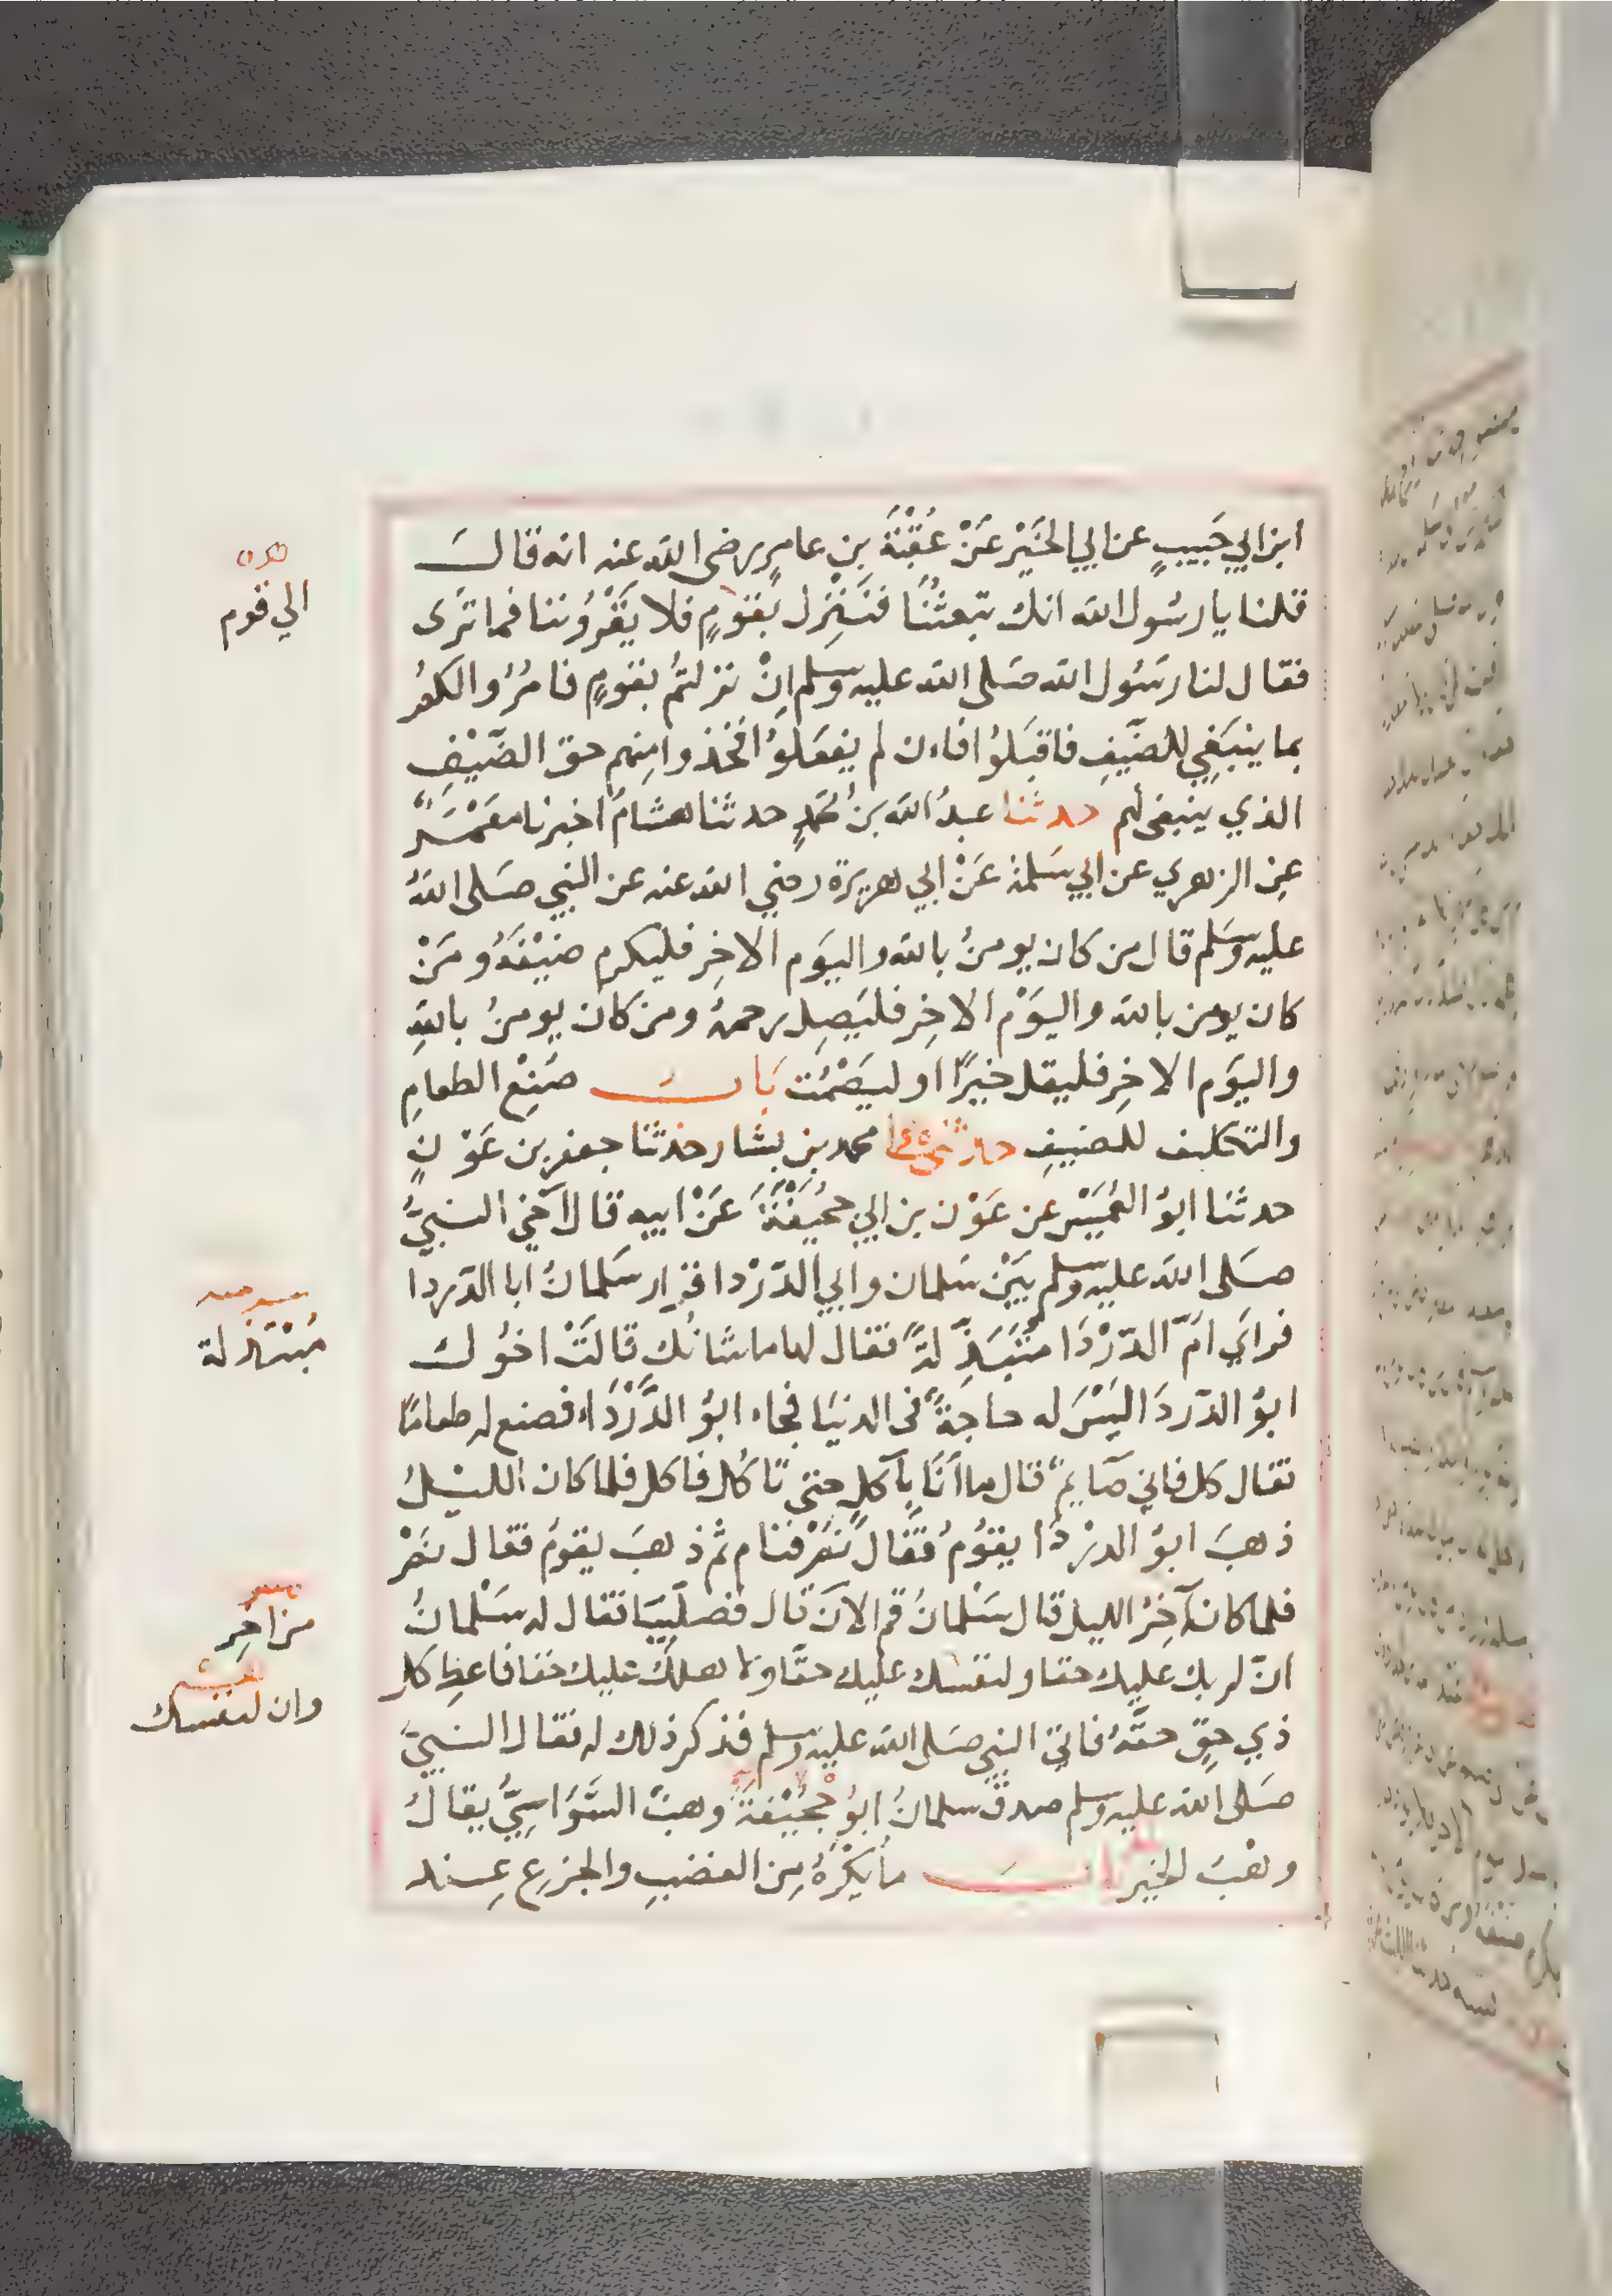 ابن ابي حَبيبٍ عن ابي الخَيْر عَنْ عُقْبَةَ بنِ عامرٍ رضى الله عنه انه قالَ
قلنا يا رسُول الله انك تبعثُنَا فنَنْزِل بقَومٍ فلا يَقْرُوننا فما تَرى
فقال لنا رسَُول الله صَلى الله عليه وسَلم اِنْ نزلتمُ بقومٍ فامُرُوا لكمُ
بما ينبَغِي للضّيَفِ فاقبَلوُا فاءن لم يفعَلوُا فخذوا منِهم حق الضَّيْفِ
الذي ينبغى لهم حدثنا عبدُ الله بنُ محَمدٍ حدثنا هشامٌ اخبرنا معَمْرٌ
عنِ الزهري عن ابي سَلمة عَنْ ابي هريرة رضي الله عنه عن النبي صَلى اللهُ
عليه وسَلم قال من كان يومنُ بالله واليَوم الاخِر فليكرم ضَيْفَهُ ومَنْ
كان يومن بالله واليَوْم الاخِر فليَصِل رحمهُ ومن كان يومنُ باللهِ
واليَوم الاخِر فليقل خيرًا او ليَصْمُت بَابُ صَنِعْ الطعامِ
والتكلف للضيفِ حدثني محمد بن بشار حدثنا جعفر بن عَوْنٍ
حدثنا ابوُ العُمَيْسِ عن عَوْن بن ابي جُحَيْفَةَ عَنْ ابيه قال آخي النبيُّ
صَلى الله عليه وسَلم بَيْنَ سَلمان وابي الدّرْدا فزار سَلمانُ ابا الدّردا
فراَي امَّ الدّرْدَا مُتَبَذِّلَةً فقال لها ما شانُكِ قالَتْ اخوُك
ابوُ الدّردَا ليَسَْ له حاجَةٌ فى الدنيَا فجاء ابوُ الدَّرْدَاء فصنع له طعامًا
فقال كل فاني صَآيمٌ قال ما اَنَا بِآكلٍ حتي تَاكُل فاكل فلما كان الليْلُ
ذهبَ ابوُ الدرْدَا يقوُمُ فقَالَ نَمْ فنام ثم ذهبَ يقومُ فقال نَمْ
فلما كان آخِرُ الليل قال سَلْمانُ قم الانَ قال فصلّيَا فقال له سَلْمانُ
انّ لربك عليك حقا ولنفسك عليك حقًا ولاهلكَ عليك حقا فاعطِ كل
ذي حقٍ حقَّهُ فاتي النبي صَلى الله عليه وسَلم فذكر ذلك له فقال النبيُّ
صَلى الله عليه وسَلم صدق سلمانُ ابوُ جُحَيْفةَ وهبٌ السُّوَاسيُّ يقالُ
وهْبُ الخير بابُ ما يُكْرَهُ مِن الغضبِ والجزعِ عِند
الي قوم
مُبْتَذلة
من اخِر
وان لنفسك